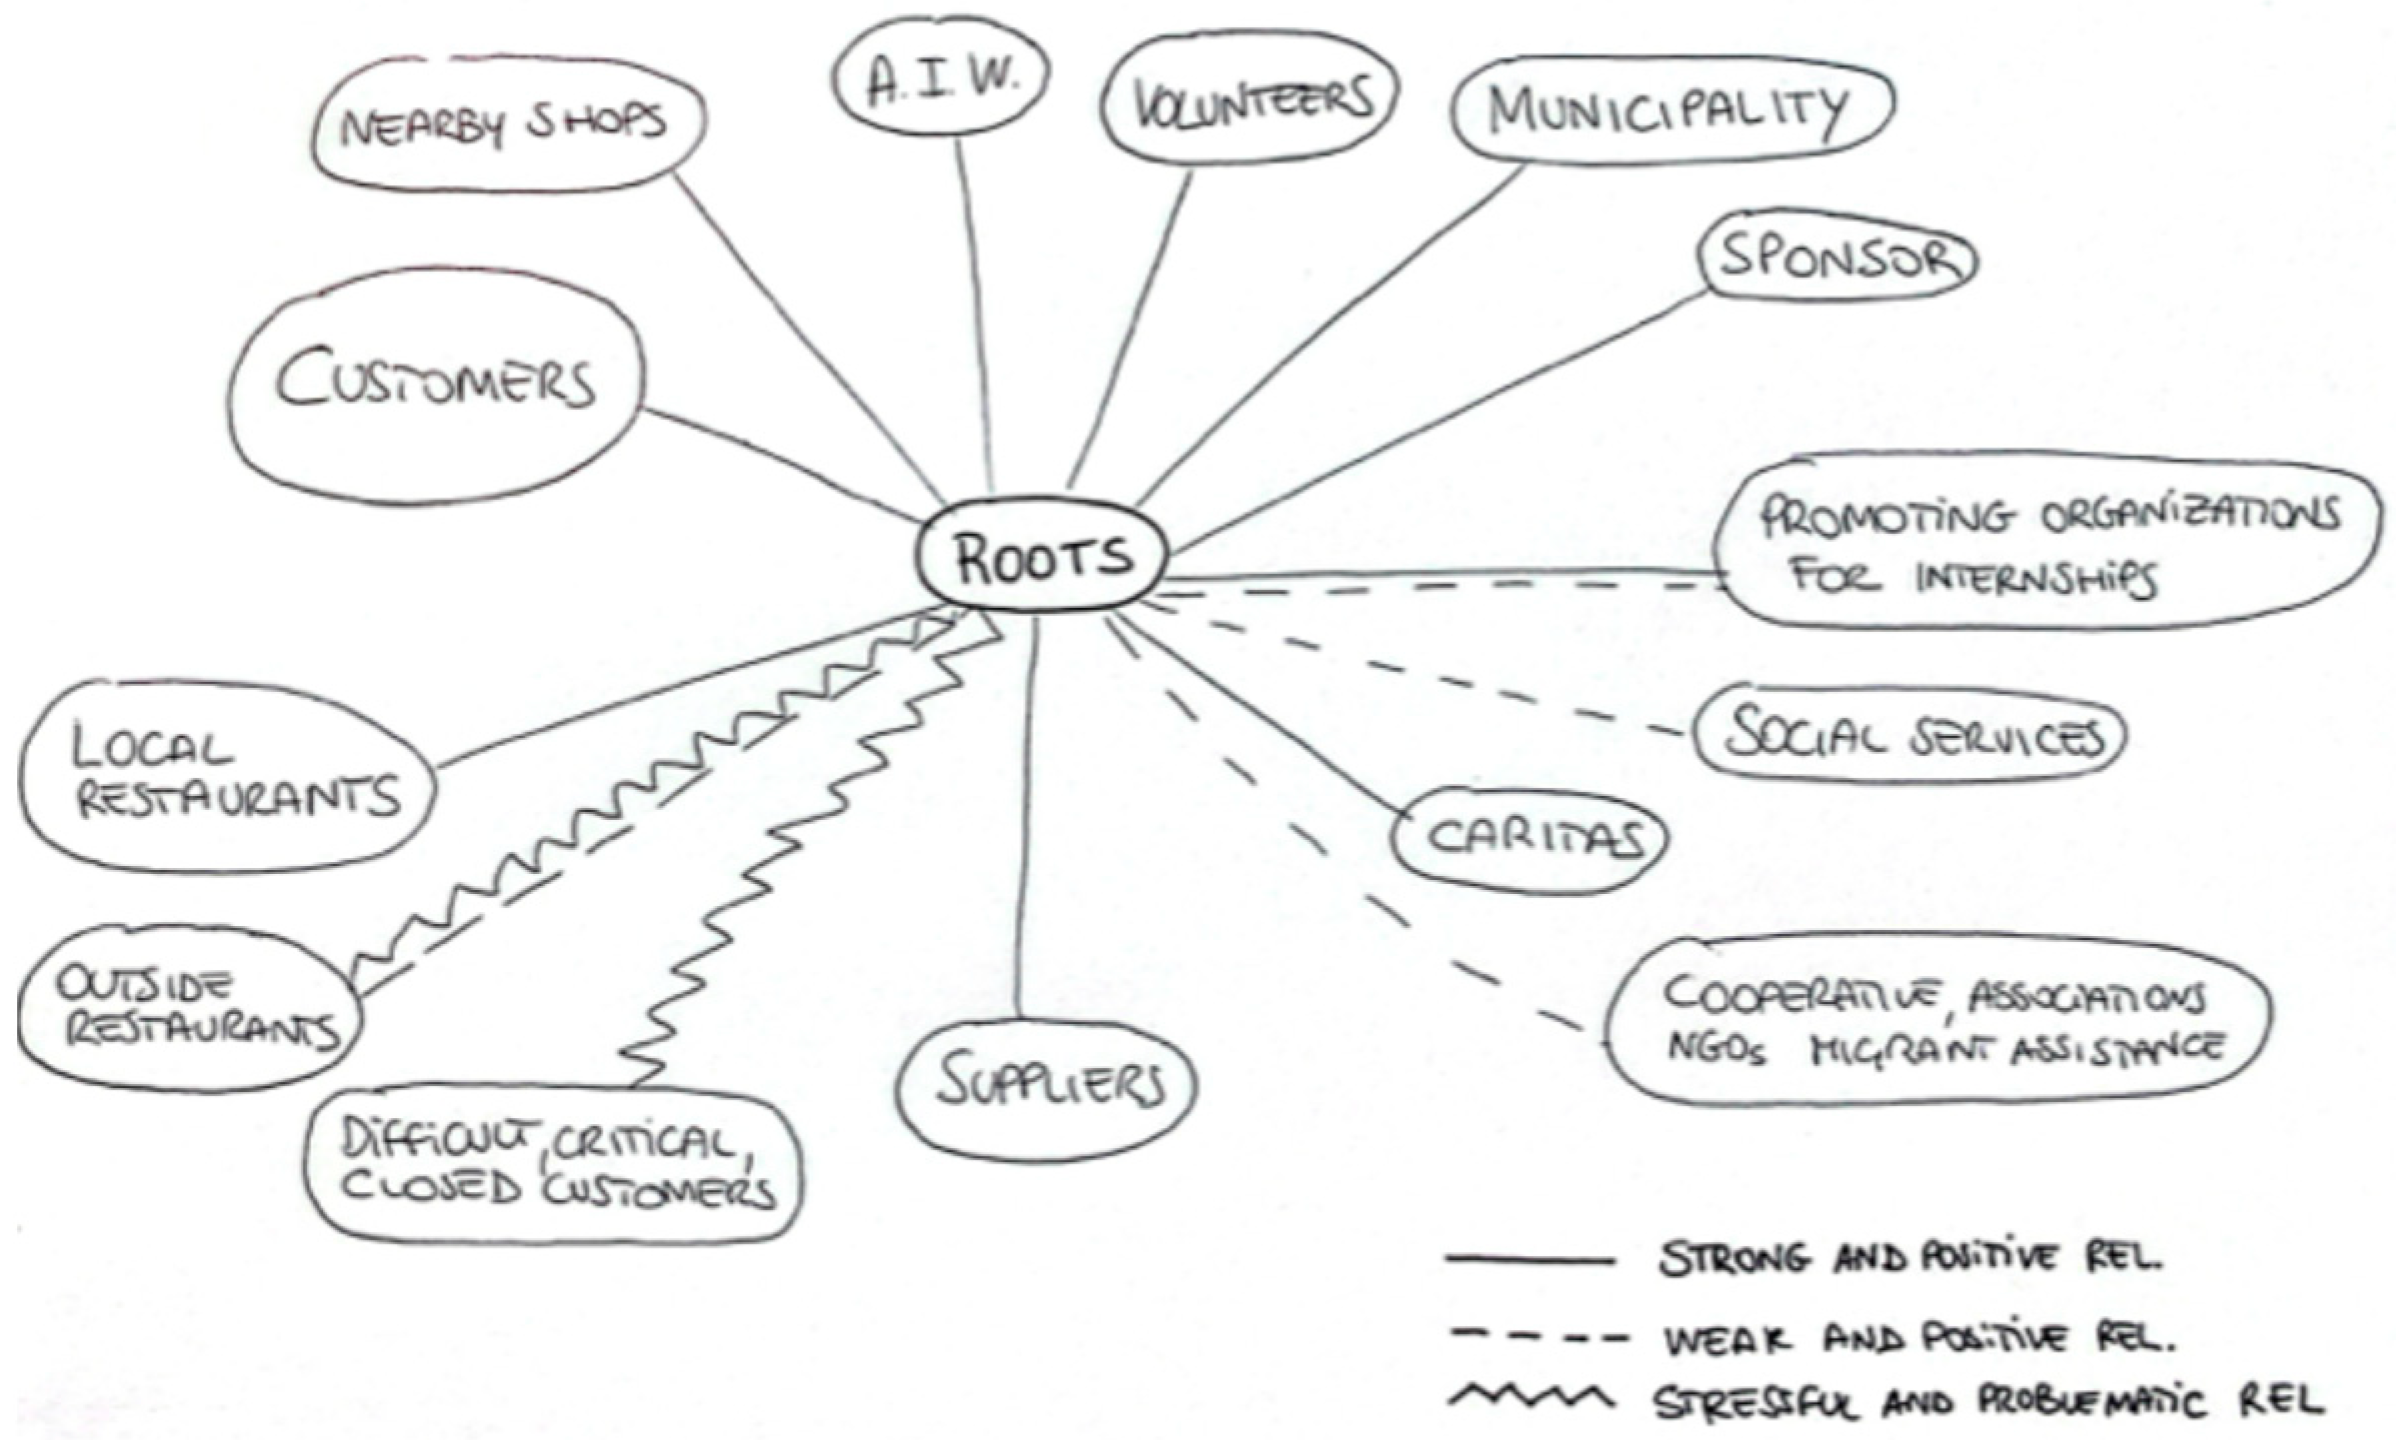 A.I.W.
NEARBY SHOPS
VOLUNTEERS
MUNICIPALITY
SPONSOR
CUSTOMERS
PROMOTING ORGANIZATIONS
FOR INTERNSHIPS
ROOTS
LOCAL
RESTAURANTS
SOCIAL SERVICES
CARITAS
OUTSIDE
RESTAURANTS
COOPERATIVE, ASSOCIATIONS
NGOs MIGRANT ASSISTANCE
SUPPLIERS
DIFFICULT, CRITICAL,
CLOSED CUSTOMERS
STRONG AND POSITIVE REL.
WEAK AND POSITIVE REL.
STRESSFUL AND PROBLEMATIC REL